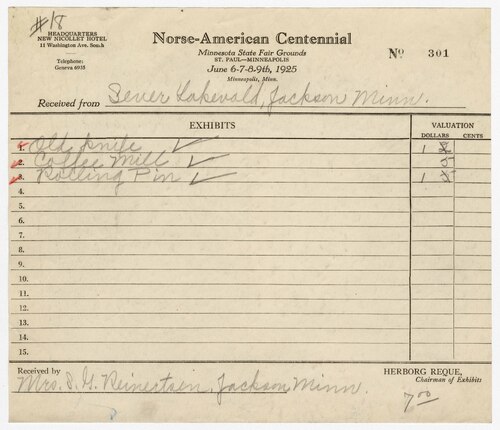 #18
HEADQUARTERS
NEW NICOLLET HOTEL
11 Washington Ave. South
Telephone:
Geneva 6935
Norse-American Centennial
Minnesota State Fair Grounds
ST. PAUL—MINNEAPOLIS
June 6-7-8-9th, 1925
Minneapolis, Minn.
No 301
Received from Sever Lakevold, Jackson Minn.
EXHIBITS
VALUATION
DOLLARS CENTS
1. Old Knife ✓ 1
2. Coffee Mill ✓
3. Rolling Pin ✓ 1
4.
5.
6.
7.
8.
9.
10.
11.
12.
13.
14.
15.
Received by
Mrs. S. G. Reinertsen, Jackson Minn.
HERBORG REQUE,
Chairman of Exhibits
7.00